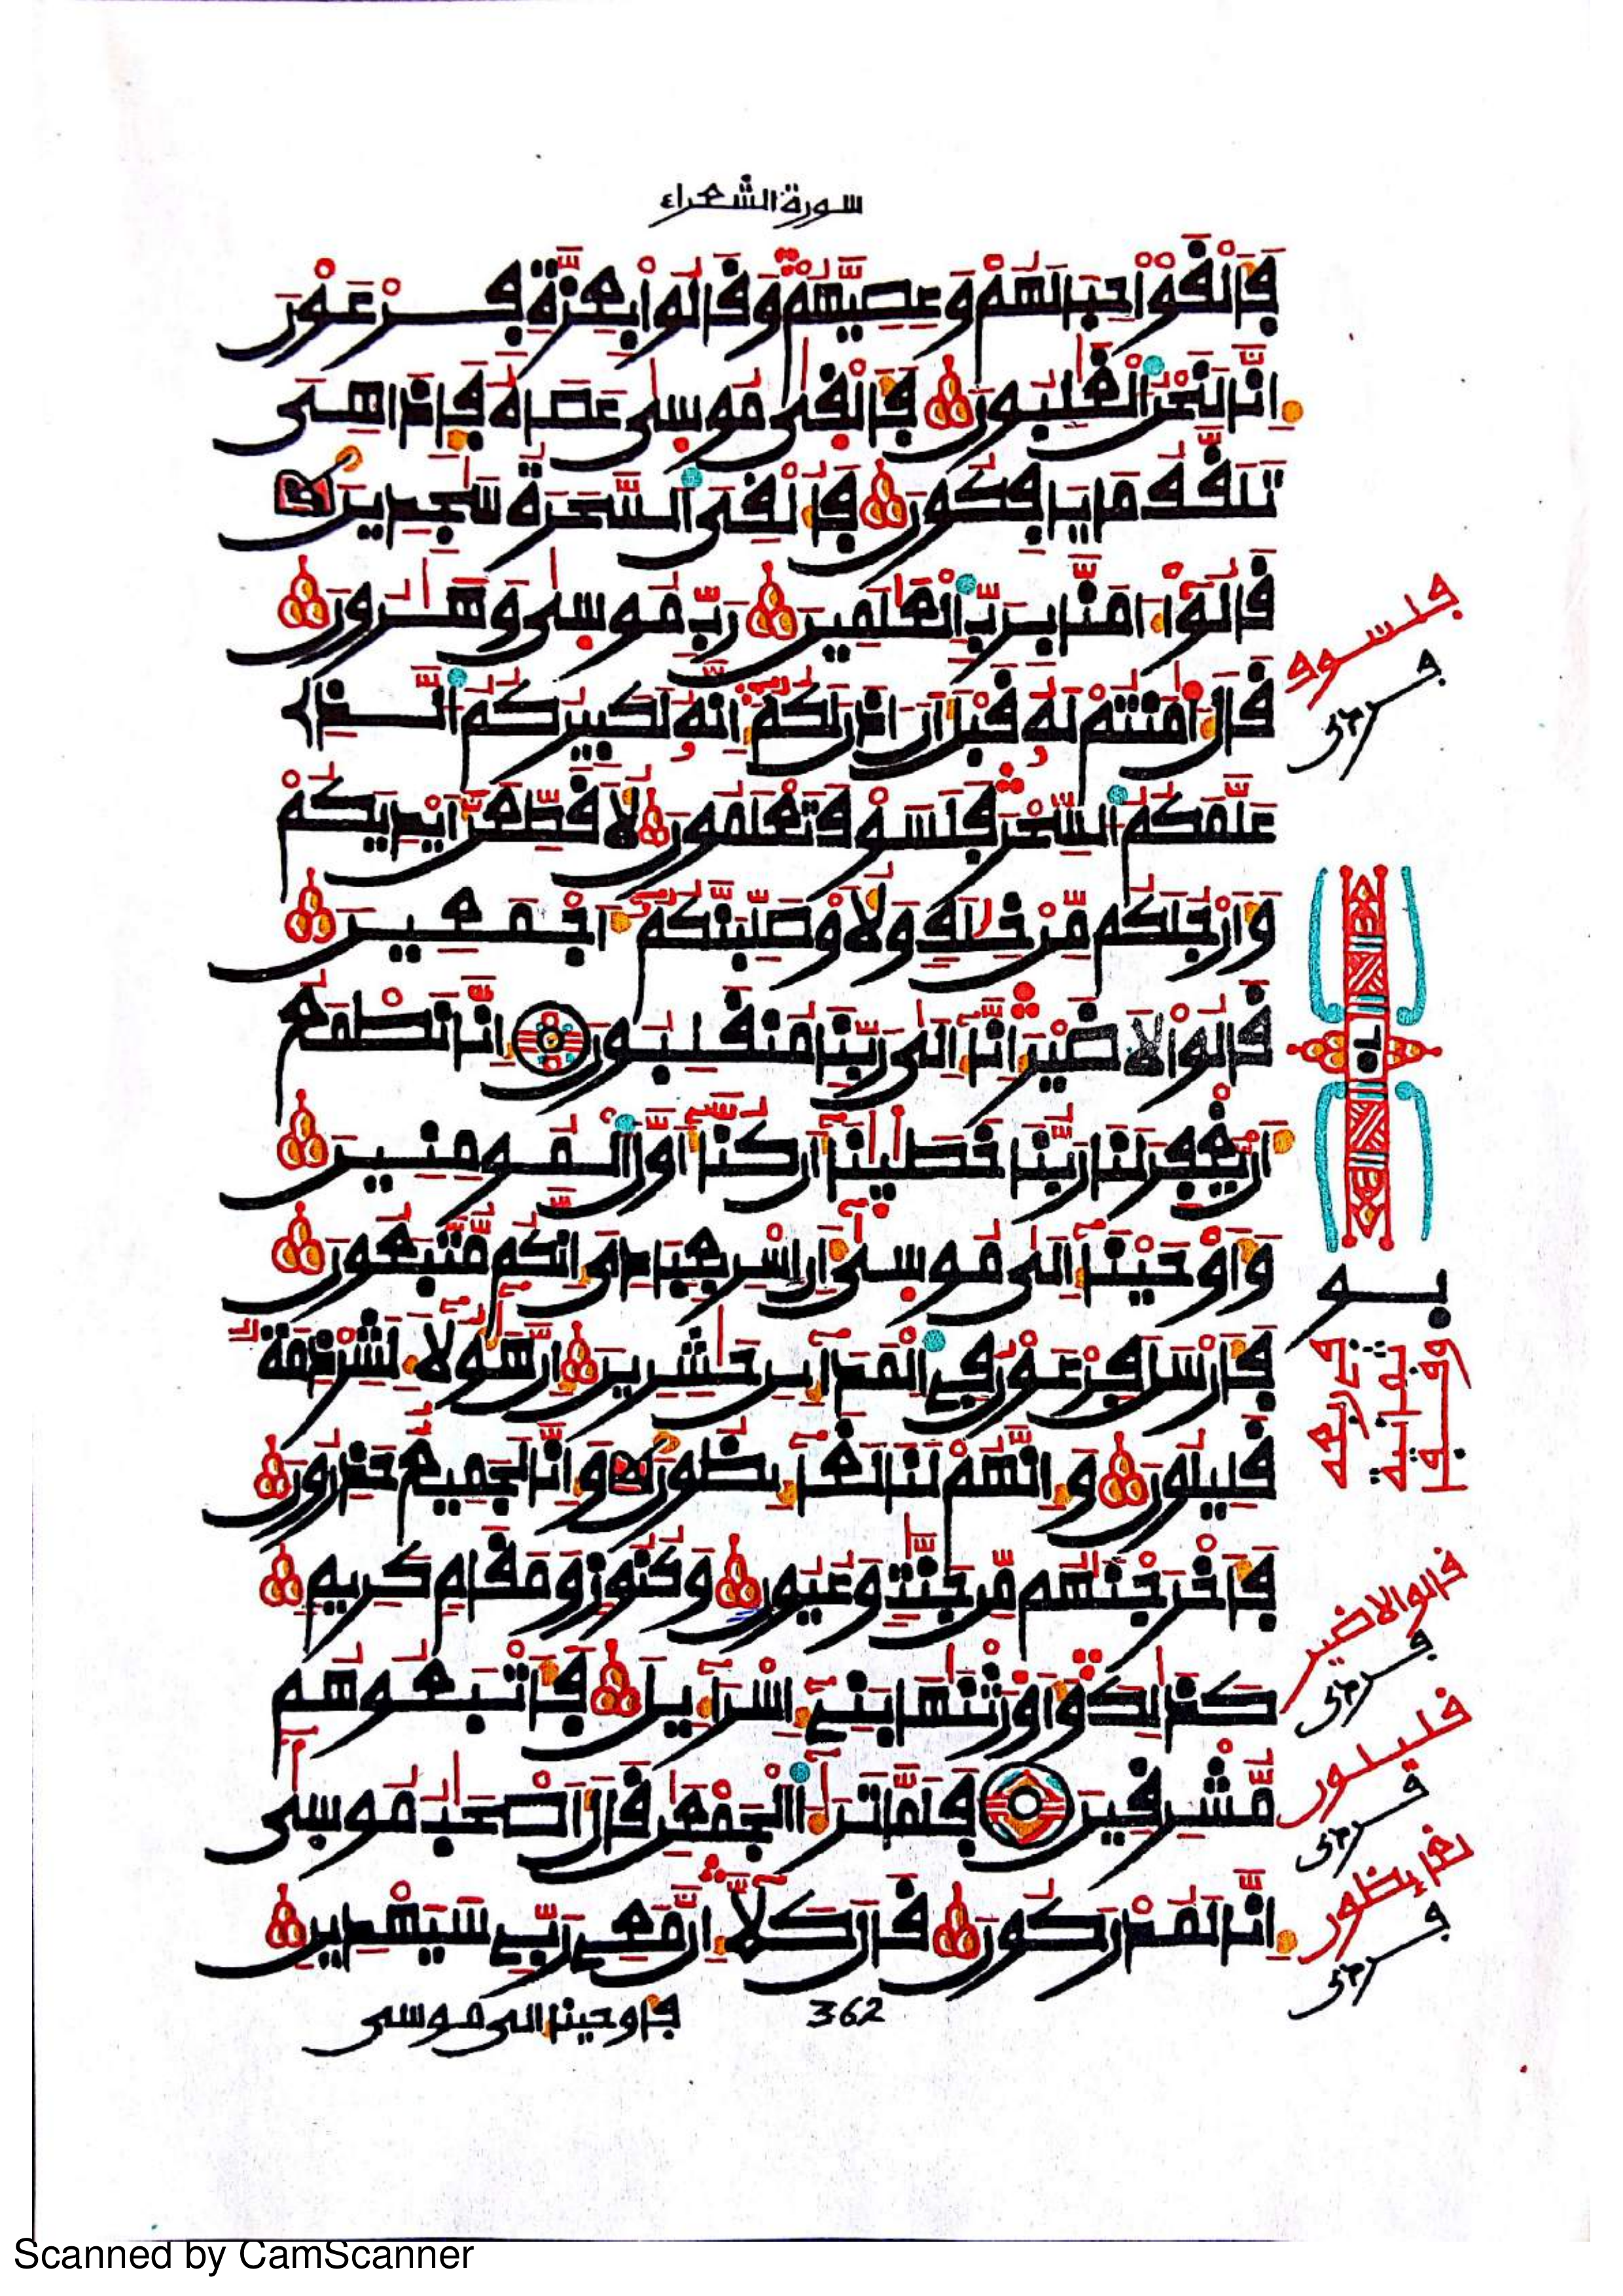 سورة الشعراء
فَأَلْقَوْاْ حِبَالَهُمْ وَعِصِيَّهُمْ وَقَالُواْ بِعِزَّةِ فِرْعَوْنَ
إِنَّا لَنَحْنُ الْغَٰلِبُونَ فَأَلْقَىٰ مُوسَىٰ عَصَاهُ فَإِذَا هِىَ
تَلَقَّفُ مَا يَافِكُونَ فَأُلْقِىَ السَّحَرَةُ سَٰجِدِينَ
قَالُواْ ءَامَنَّا بِرَبِّ الْعَٰلَمِينَ رَبِّ مُوسَىٰ وَهَٰرُونَ
قَالَ ءَامَنتُمْ لَهُ قَبْلَ أَنْ ءَاذَنَ لَكُمْ إِنَّهُ لَكَبِيرُكُمُ الَّذِى
عَلَّمَكُمُ السِّحْرَ فَلَسَوْفَ تَعْلَمُونَ لَأُقَطِّعَنَّ أَيْدِيَكُمْ
وَأَرْجُلَكُم مِّنْ خِلَٰفٍ وَلَأُوصَلِّبَنَّكُمُ أَجْمَعِينَ
قَالُواْ لَا ضَيْرَ إِنَّا إِلَىٰ رَبِّنَا مُنقَلِبُونَ إِنَّا نَطْمَعُ
أَنْ يَّغْفِرَ لَنَا رَبُّنَا خَطَٰيَٰنَا أَن كُنَّا أَوَّلَ الْمُومِنِينَ
وَأَوْحَيْنَا إِلَىٰ مُوسَىٰ أَنِ اسْرِ بِعِبَادِىَ إِنَّكُم مُّتَّبَعُونَ
فَأَرْسَلَ فِرْعَوْنُ فِى الْمَدَآئِنِ حَٰشِرِينَ إِنَّ هَٰؤُلَآءِ لَشِرْذِمَةٌ
قَلِيلُونَ وَإِنَّهُمْ لَنَا لَغَآئِظُونَ وَإِنَّا لَجَمِيعٌ حَذِرُونَ
فَأَخْرَجْنَٰهُم مِّن جَنَّٰتٍ وَعُيُونٍ وَكُنُوزٍ وَمَقَامٍ كَرِيمٍ
كَذَٰلِكَ وَأَوْرَثْنَٰهَا بَنِىٓ إِسْرَآءِيلَ فَأَتْبَعُوهُم
مُّشْرِقِينَ فَلَمَّا تَرَٰٓءَا الْجَمْعَٰنِ قَالَ أَصْحَٰبُ مُوسَىٰ
إِنَّا لَمُدْرَكُونَ قَالَ كَلَّآ إِنَّ مَعِى رَبِّى سَيَهْدِينِ
فأوحينا إلى موسى
362
فلسوف
قالوا لا ضير
قليلون
لغائظون
Scanned by CamScanner